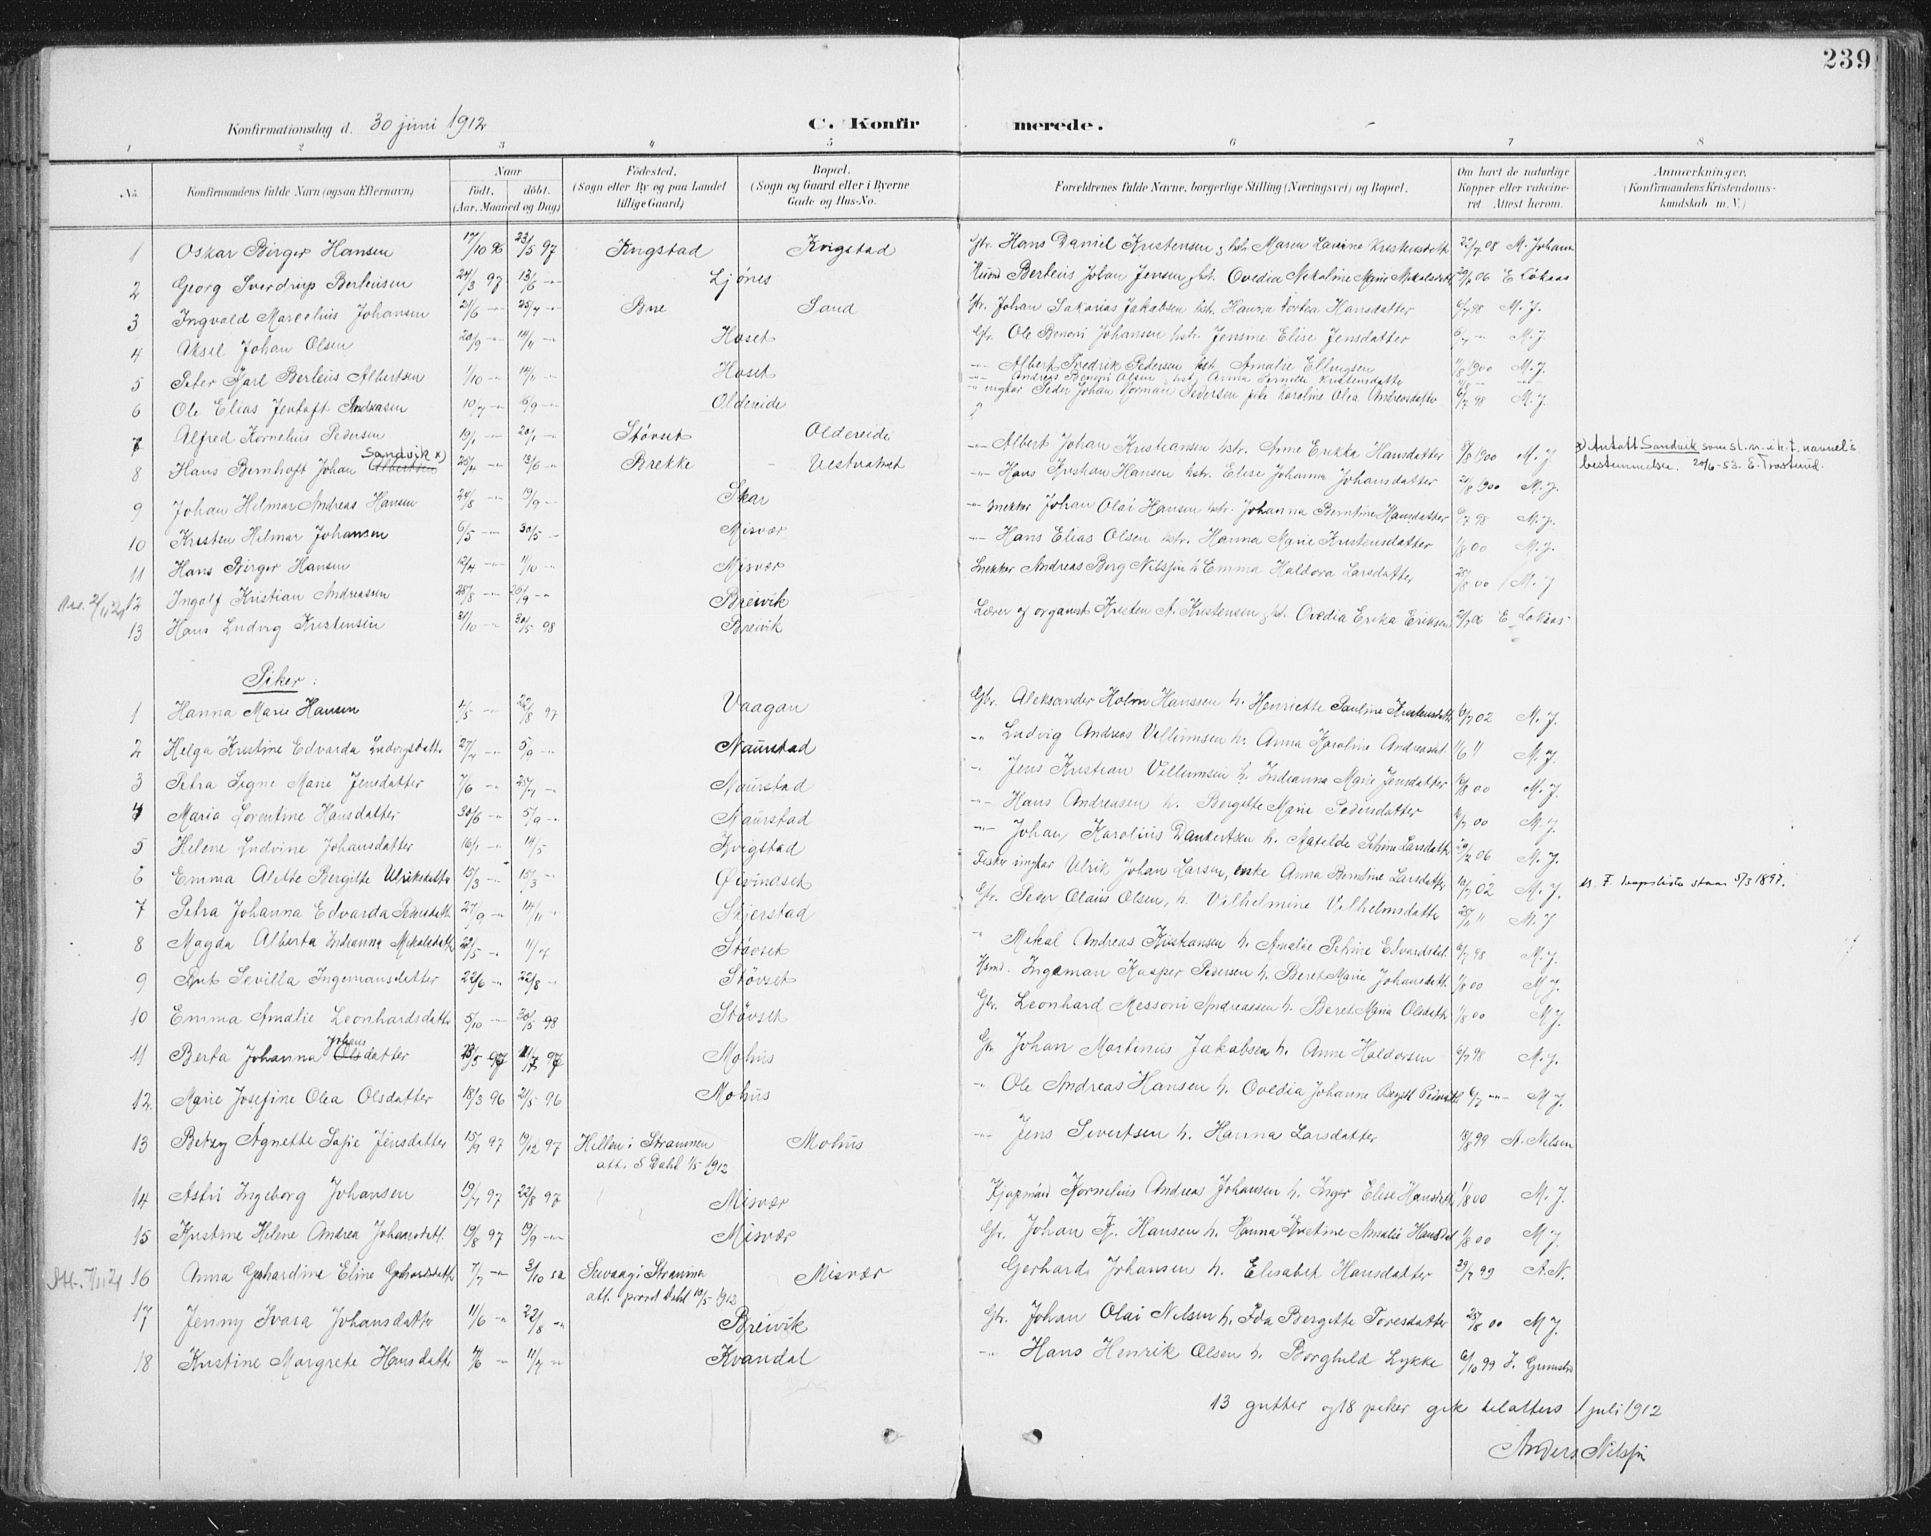 239
Konfirmationsdag d. 30 juni 1912 C. Konfirmerede.
1 2 3 4 5 6 7 8
No. Konfirmandens fulde Navn (ogsaa Efternavn) Naar født. døbt. (Aar. Maaned og Dag) Fødested. (Sogn eller By og paa Landet tillige Gaard) Bopæl. (Sogn og Gaard eller i Byerne Gade og Hus-No. Forældrenes fulde Navne, borgerlige Stilling (Næringsvei) og Bopæl. Om havt de naturlige Kopper eller vakcineret. Attest herom. Anmærkninger. (Konfirmandens Kristendomskundskab m. V.)
1 Oskar Birger Hansen 17/10 96 23/5 97 Kvigstad Kvigstad Gbr. Hans Daniel Kristensen hstr. Maren Lavine Kristensdatt 22/7 08 M. Johans
2 Georg Sverdrup Berteusen 24/3 97 13/6 Ljønes Berteus Johan Jensen hst. Ovedia Nikoline Marie Nikolaisdtt 06 E Løkaas
3 Ingvald Marcelius Johansen 21/6 25/7 Bne Sand Gbr. Johan Sakarias Jakobsen hst. Hanna Hansdatter 6/7 98 M. J.
4 Aksel Johan Olsen 20/9 14/11 Hoset Gbr. Ole Benoni Johansen hstr. Jensine Elise Jensdatter M. J
5 Peter Karl Berteus Albertsen 1/10 14/11 Hoset Albert Fredrik Pedersen hst. Amalie Ellingsen 1/8 1900 M. J.
Andreas Benoni Olsen hst. Anna Pernille Kristensdatte
6 Ole Elias Jentoft Andreasen 10/7 5/9 Oldereide ungkar Peder Johan Norman Pedersen pike Karoline Olea Andreasdatte 6/7 98 M. J.
7 Alfred Kornelius Pedersen 19/1 20/1 Støvset Oldereide
8 Hans Bernhoft Johan Albertsen Sandvik x) 25/4 13/6 Brekke - Vestvatnet Albert Johan Kristiansen hstr. Anne Erikka Hansdatter 8/8 1900 M. J x) Antatt Sandvik som sl.n. i h.t. navnel's bestemmelser. 20/6-53. E. Trosterud.
9 Johan Hilmar Andreas Hansen 24/8 19/9 Skar Hans Kristian Hansen hstr. Elise Johanna Johansdatter 21/8 1900 M. J.
10 Kristen Hilmar Johansen 6/5 30/5 Misvær snekker Johan Olai Hansen hstr. Johanna Berntine Hansdatter 6/7 98 M. J.
11 Hans Birger Hansen 12/4 11/10 Misvær Hans Elias Olsen hstr. Hanna Marie Kristensdatter 1/8 00 M. J.
12 Ingolf Kristian Andreasen 28/8 26/9 Breivik Snekker Andreas Berg Nilsen h Emma Haldora Larsdatter 25/8 00 M. J
13 Hans Ludvig Kristensen 31/10 30/5 98 Breivik Lærer og organist Kristen A. Kristensen hst. Ovedia Erika Eriksen 21/7 06 E Løkaas
Piker:
1 Hanna Marie Hansen 4/5 22/8 97 Vaagan Gbr. Aleksander Holm Hanssen h. Henriette Pauline Kristensdtt 6/7 02 M. J.
2 Helga Kristine Edvarda Ludvigsdatte 27/7 5/9 Naurstad Ludvig Andreas Villumsen h. Anna Karoline Andreasdt 1/6 11 M. J.
3 Petra Signe Marie Jensdatter 7/6 25/7 Naurstad Jens Kristian Villumsen h. Indianna Marie Jensdatter 00 M. J.
4 Maria Lorentine Hansdatter 30/6 5/9 Naurstad Hans Andreasen h. Bergitte Marie Pedersdatter 00 M. J.
5 Helene Ludvine Johansdatter 16/1 14/5 Kvigstad Johan Karolius Dankertsen h. Matilde Petrine Larsdatt 06 M. J.
6 Emma Alette Bergitte Ulriksdatte 15/3 15/3 Øvindset Fisker ungkar Ulrik Johan Larsen, enke Anna Berntine Larsdatte 10/7 02 M. J. daapsliste staar 5/3 1897.
7 Petra Johanna Edvarda Pedersdatt 27/9 14/11 Skjerstad Gbr. Peder Olaus Olsen, h. Vilhelmine Vilhelmsdatte M. J
8 Magda Alberta Indianna Mikalsdatt 22/5 11/7 Støvset Mikal Andreas Kristiansen h. Amalie Petrine Edvardsdt 6/7 98 M. J.
9 Sevilla Ingemansdatter 22/6 22/8 Støvset Hsmd. Ingeman Kasper Pedersen h. Beret Marie Johansdatt 1/8 00 M. J
10 Emma Amalie Leonhardsdatte 5/10 30/5 98 Støvset Gbr. Leonhard Messoni Andreassen h. Beret Maria Olsdatte 1/8 00 M. J.
11 Berta Johanna Olsdatter Johans 23/5 97 11/7 97 Mohus Gbr Johan Martinus Jakobsen h. Anne Haldorsen 6/7 98 M. J.
12. Marie Josefine Olea Olsdatter 18/3 96 21/5 96 Mohus Ole Andreas Hansen h. Ovedia Johanne Bergitt 6/7 M. J.
13 Betzy Agnette Sofie Jensdatter 15/9 97 19/12 97 Hellen i Strømmen Mohus Jens Sivertsen h. Hanna Larsdatter 18/8 99 A. Nilsen
att. S Dahl 1/5 1912
14 Astri Ingeborg Johansen 19/7 97 22/8 97 Misvær Kjøpmand Kornelius Andreas Johansen h. Inger Elise Hansdatt 1/8 00 M. J.
15 Kristine Helene Andrea Johansdatt. 19/8 97 19/9 Misvær Gbr. Johan F. Hansen h. Hanna Kristine Amalie Hansdat 1/8 00 M J.
16 Anna Gerhardine Eline Gerhardsdatte 7/7 3/10 Sævaag i Strømmen Misvær Gerhard Johansen h. Elisabet Hansdatter 29/7 99 A. N.
att. provst Dahl 10/5 1912
17 Jenny Ivara Johansdatte 11/6 22/8 Breivik Gbr. Johan Olai Nilsen h. Ida Bergitte Toresdatter 25/8 00 M J.
18 Kristine Margrete Hansdatte 4/6 11/7 Kvandal Hans Henrik Olsen h. Borghild Lykke 6/10 99 J.
13 gutter og 18 piker gik til alters 1 juli 1912
Anders Nilsen